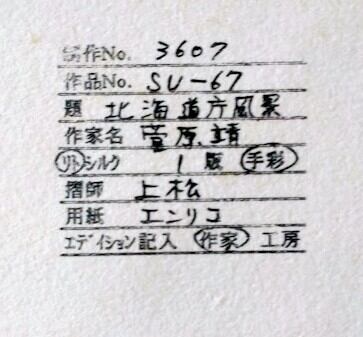 制作No. 3607
作品No. SU-67
題 北海道庁風景
作家名 菅原靖
リト シルク 1版 手彩
摺師 上松
用紙 エンリコ
エディション記入 作家 工房